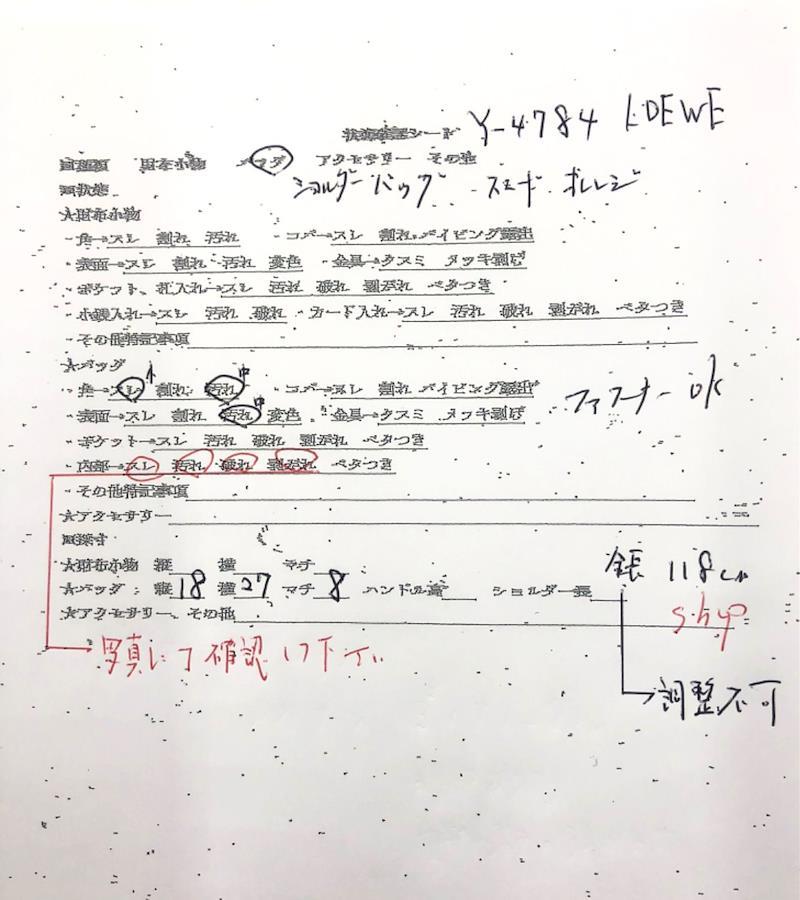 状態確認シート Y-4784 LOEWE
財布小物 バッグ アクセサリー その他
ショルダーバッグ スエード オレンジ
☆財布小物
・角→スレ 割れ 汚れ ・コバ→スレ 割れ パイピング露出
・表面→スレ 割れ 汚れ 変色 ・金具→クスミ メッキ剥げ
・ポケット、札入れ→スレ 汚れ 破れ 剥がれ ベタつき
・小銭入れ→スレ 汚れ 破れ ・カード入れ→スレ 汚れ 破れ 剥がれ ベタつき
・その他特記事項
☆バッグ
小 中
・角→スレ 割れ 汚れ ・コバ→スレ 割れ パイピング露出
中
・表面→スレ 割れ 汚れ 変色 ・金具→クスミ メッキ剥げ
ファスナー ok
・ポケット→スレ 汚れ 破れ 剥がれ ベタつき
・内部→スレ 汚れ 破れ 剥がれ ベタつき
・その他特記事項
☆アクセサリー
☆財布小物 縦 横 マチ
☆バッグ：縦 18 横 27 マチ 8 ハンドル高 ショルダー長 全長 118cm
☆アクセサリー、その他
写真にて確認して下さい
調整不可